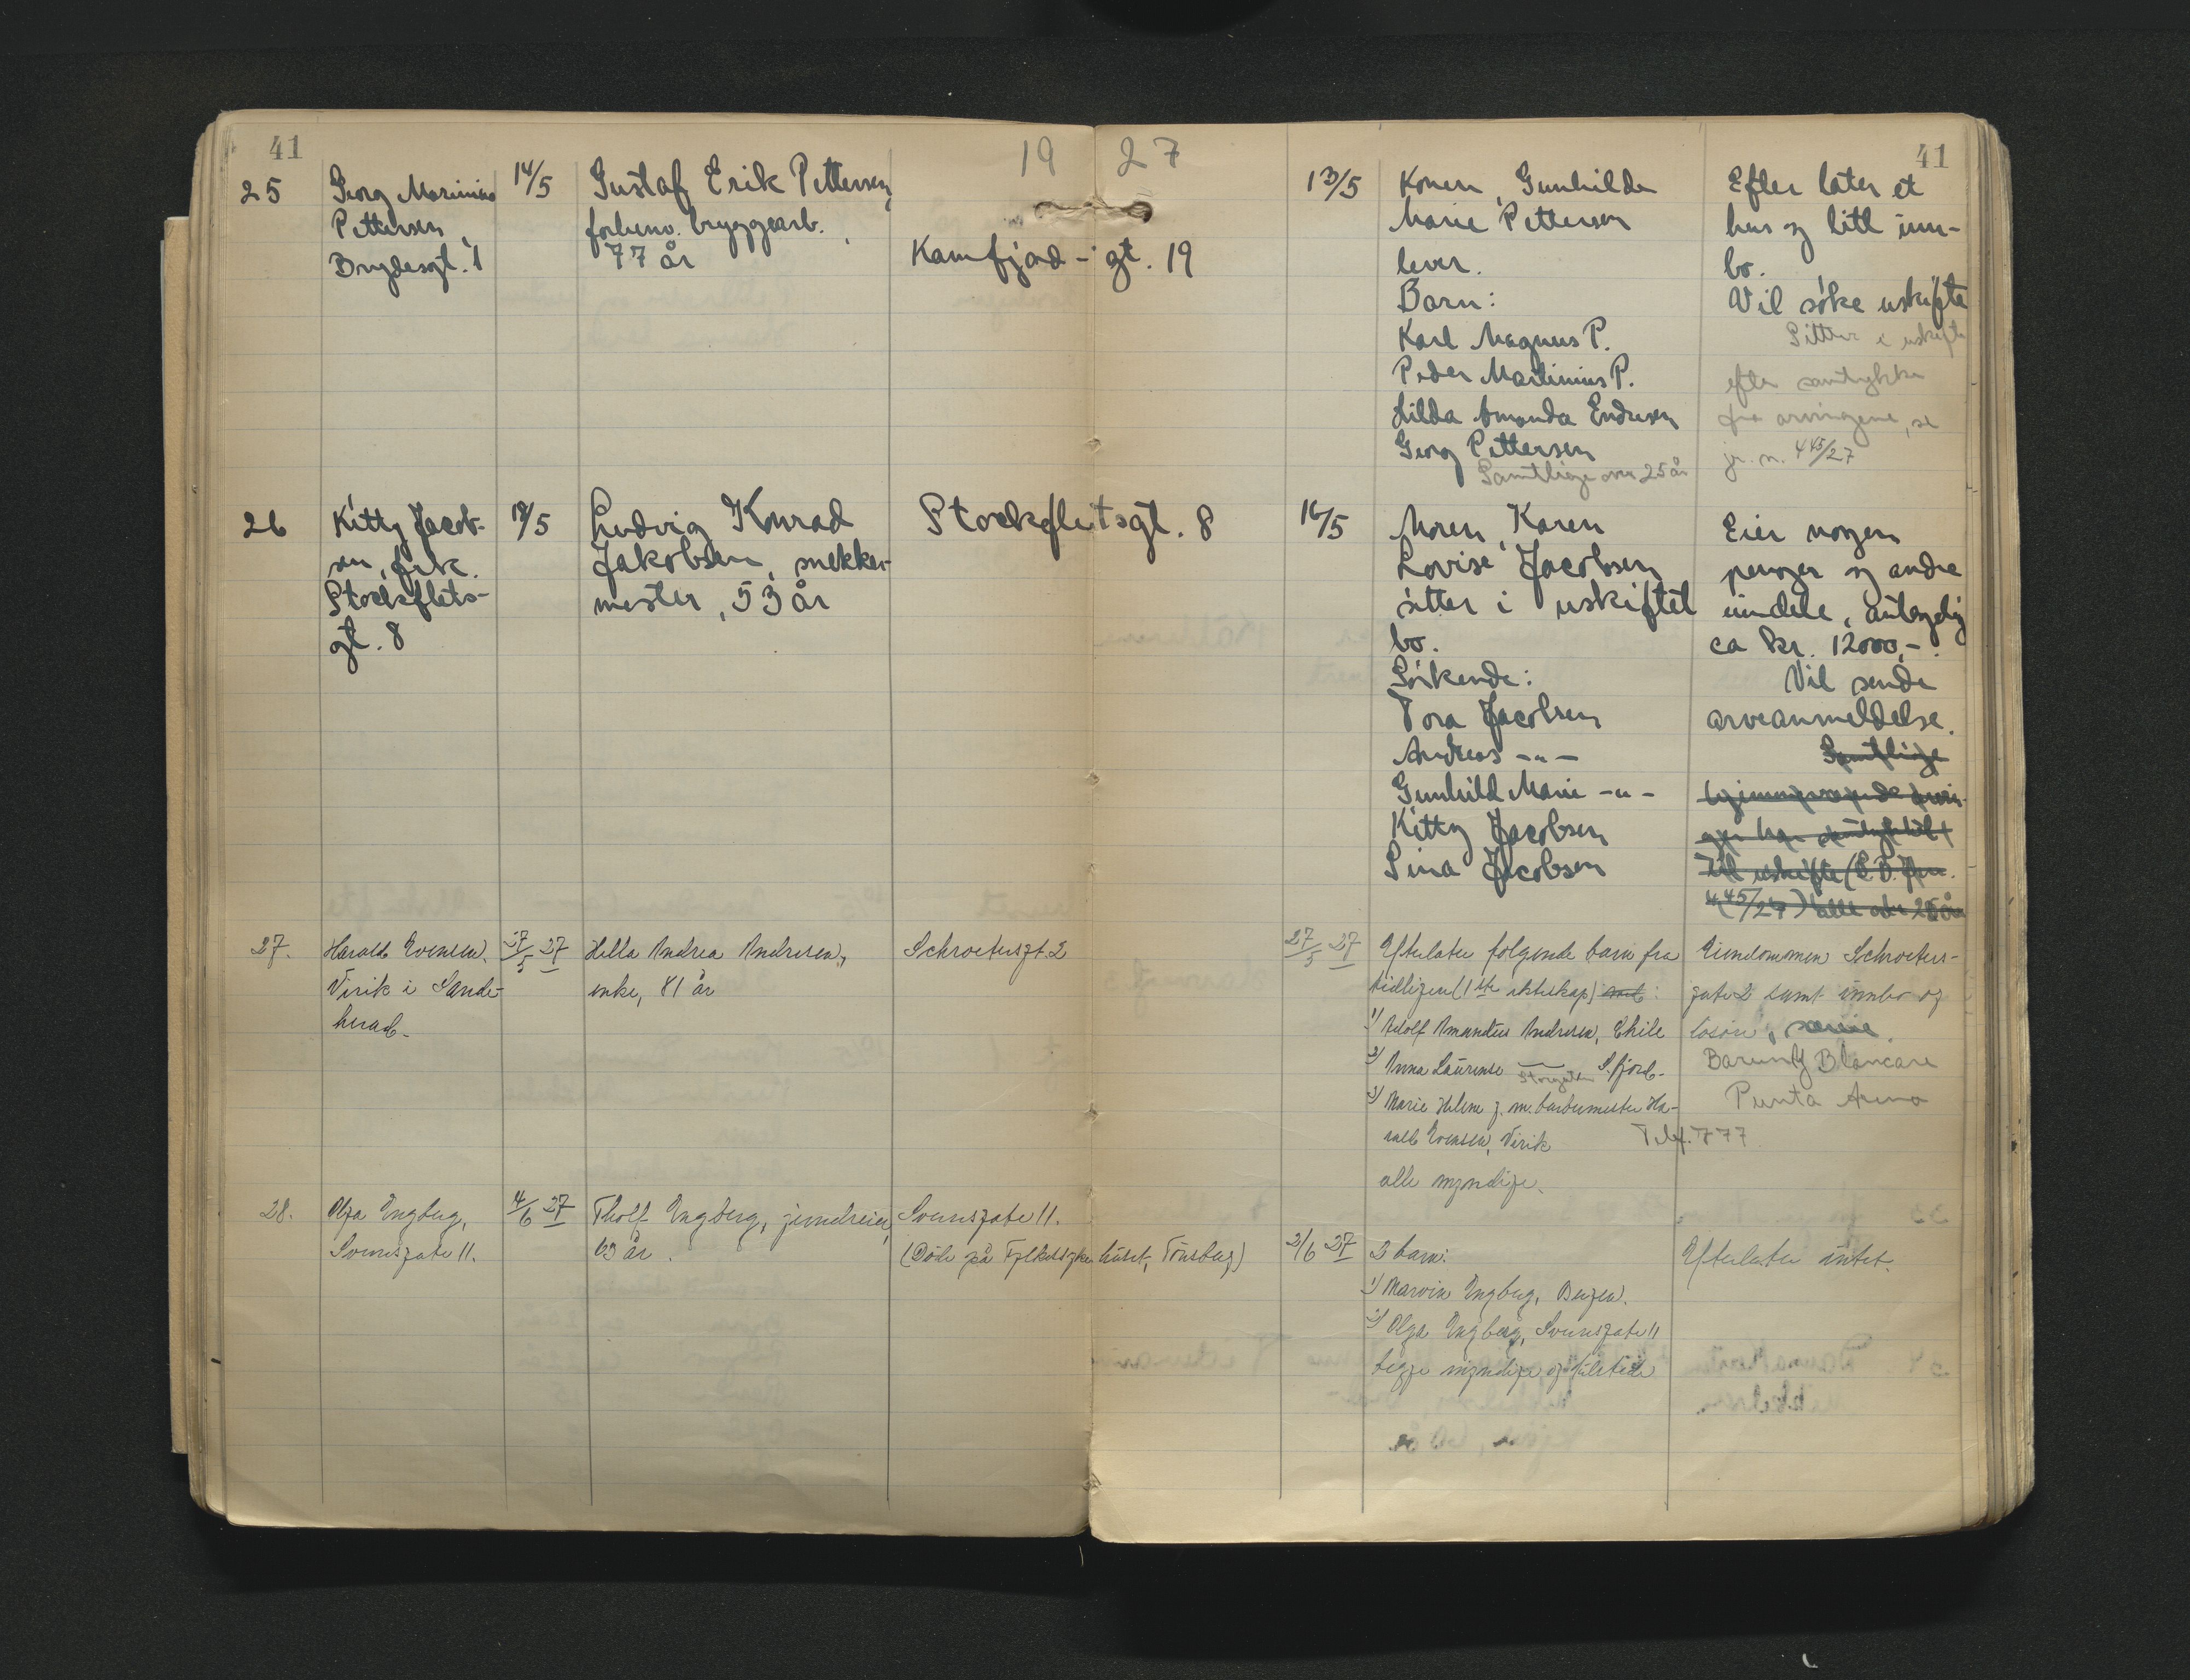 41
19 27
41
25
Georg Marinius
Pettersen,
Brydesgt. 1
14/5
Gustaf Erik Pettersen,
forhenv. bryggearb.,
77 år
Kamfjord-gt. 19
13/5
Konen, Gunhilde
Marie Pettersen
lever.
Barn:
Karl Magnus P.
Peder Martinius P.
Hilda Amanda Endresen
Georg Pettersen
Samtlige over 25 år
Efter later et
hus og litt inn-
bo.
Vil söke uskifte
Sitter i uskifte
efter samtykke
fra arvingene, se
jr. n. 445/27
26
Kitty Jacob-
sen, frk.
Stockflets-
gt. 8
Ludvig Konrad
Jakobsen, snekker-
mester, 53 år
Stockfletsgt. 8
16/5
Moren, Karen
Lovise Jacobsen
sitter i uskiftet
bo.
Söskende:
Tora Jacobsen
Andreas -"-
Gunhild Marie -"-
Kitty Jacobsen
Sina Jacobsen
Eier nogen
penger og andre
eiendele, antagelig
ca kr. 12000,-.
Vil sende
arveanmeldelse.
Samtlige
til uskifte
445/27) alle over 25 år
27.
Harald Evensen,
Virik i Sande-
herad.
27/5 27
Hella Andrea Andresen,
enke, 81 år
Schroetersgt. 2
27/5 27
Efterlater følgende barn fra
tidligere (1ste ekteskap) med:
1) Adolf Amandus Andresen, Chile
2) Anna Laurense — Storgaten S.fjord.
3) Marie Helene g. m. barbermester Ha-
rald Evensen, Virik
Telf. 777
alle myndige.
Eiendommen Schroeters-
gate 2 samt innbo og
løsøre,
Blancare
Punta Arena
28.
Olga Engberg,
Svensgate 11.
4/6 27
Tholf Engberg, jerndreier,
63 år.
Svensgate 11.
(Døde på Fylkessykehuset, Tönsberg)
2/6 27
2 barn:
1) Marvin Engberg, Bergen.
2) Olga Engberg, Svensgate 11
begge myndige og tilstede
Efterlater intet.